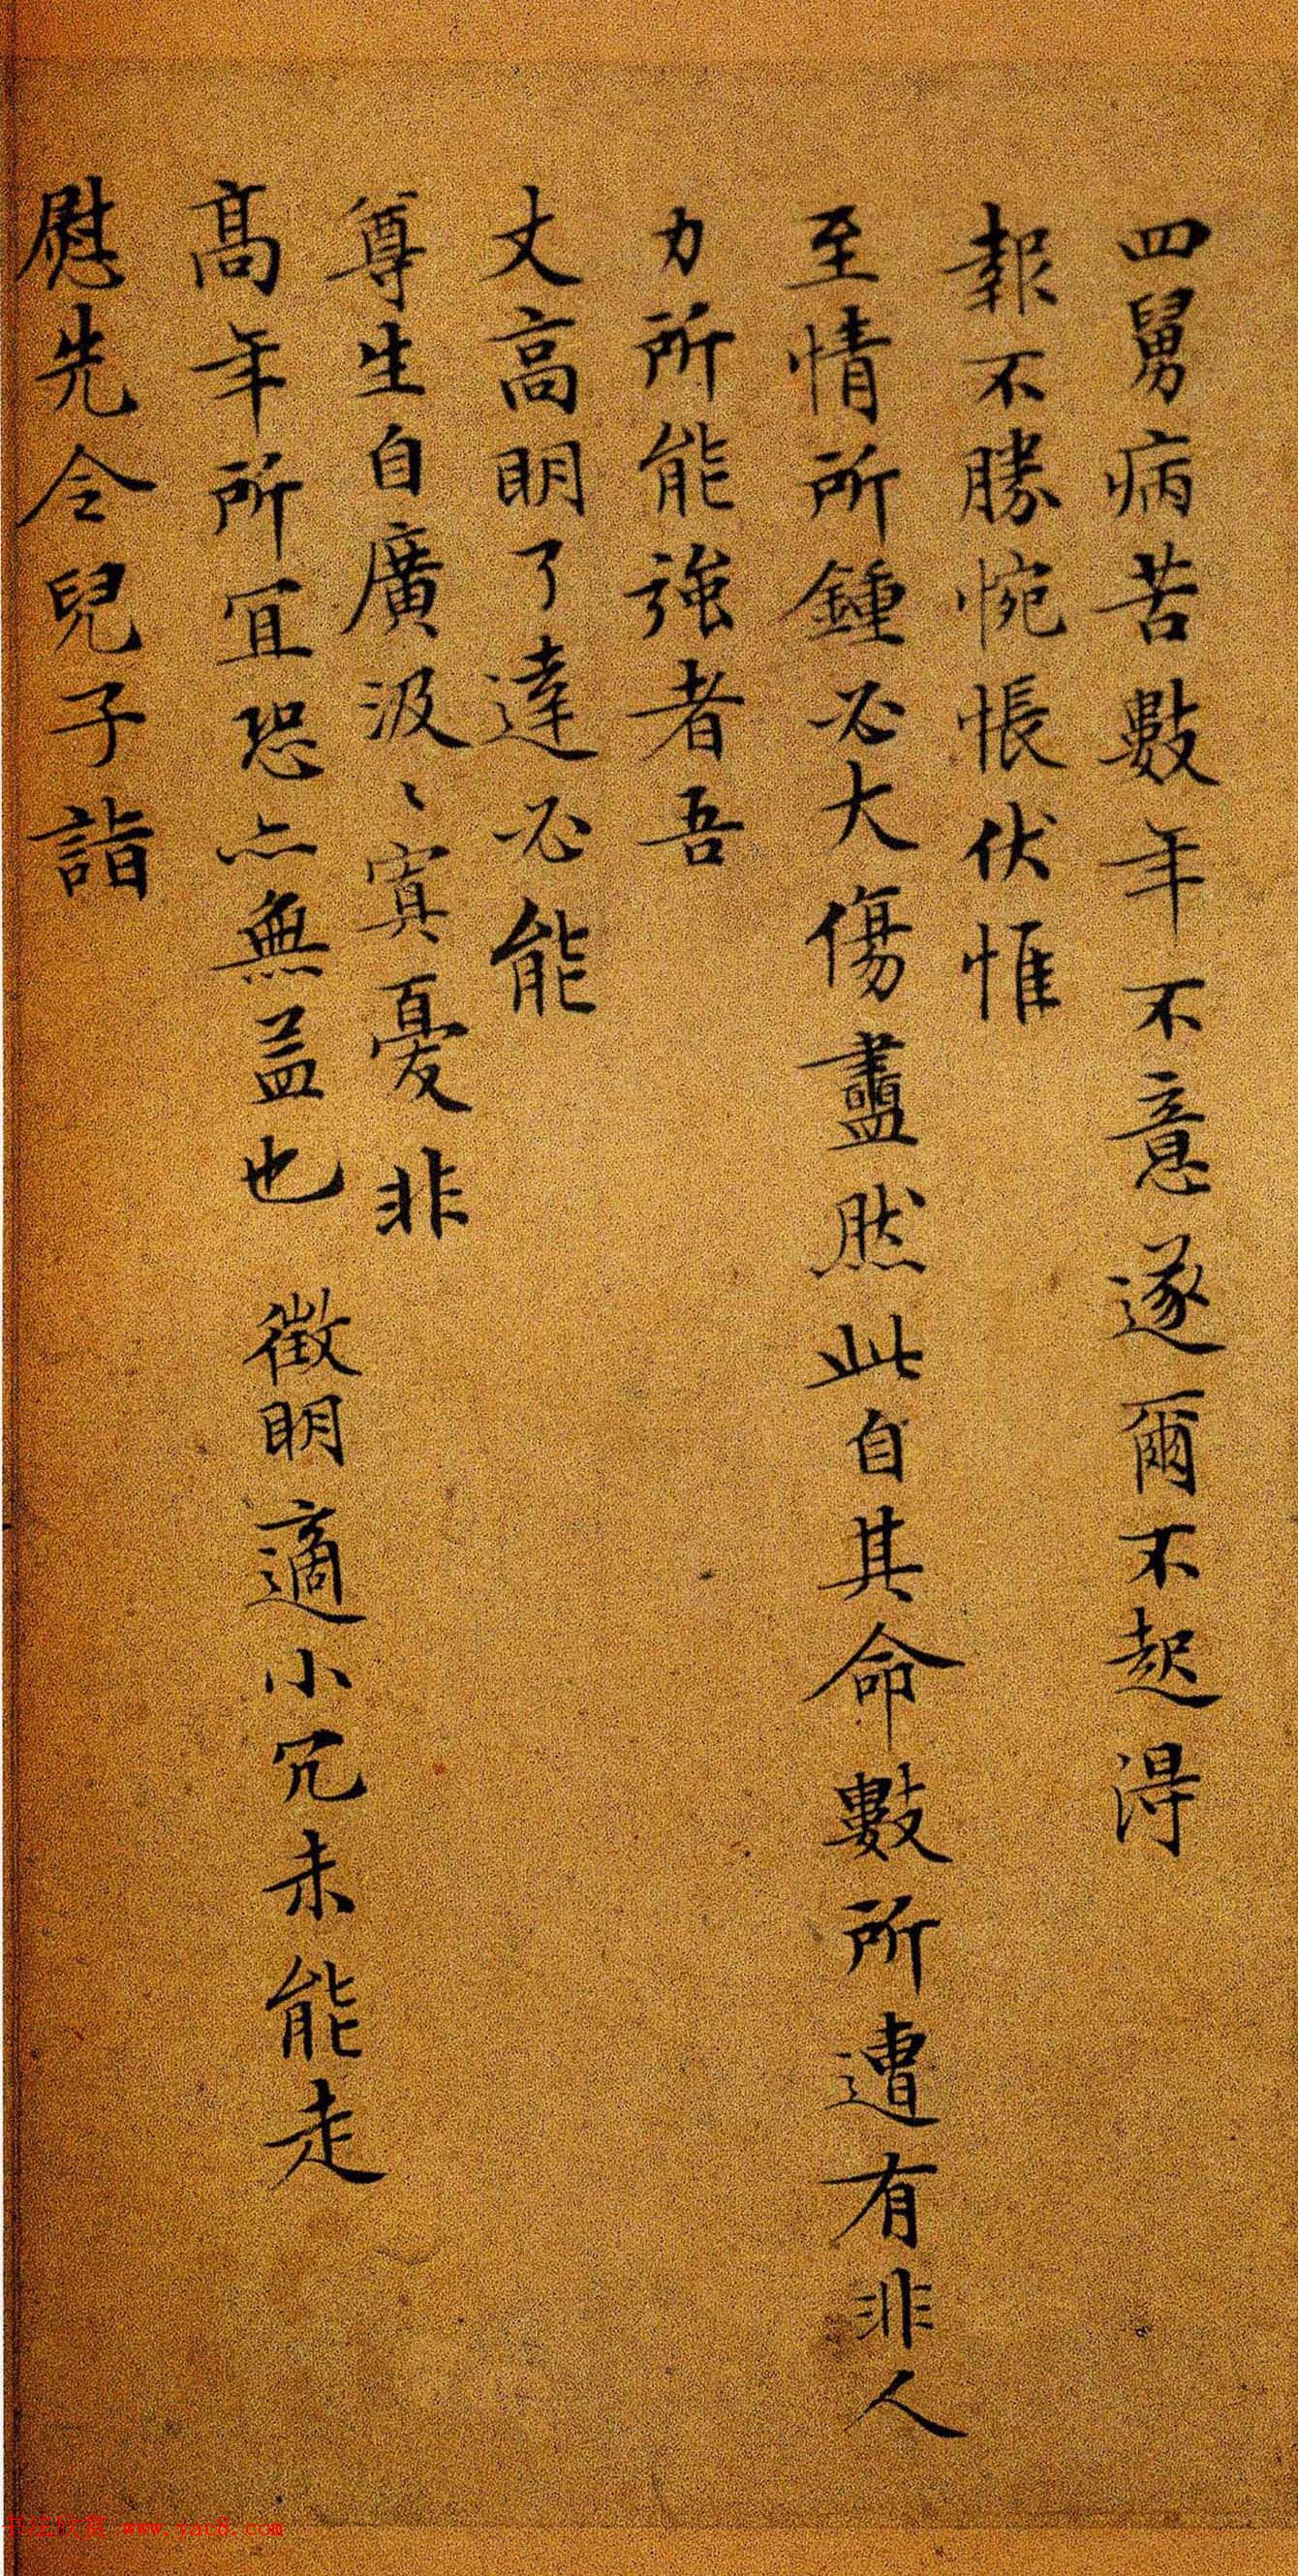 四舅病苦數年不意遂爾不起得
報不勝惋悵伏惟
至情所鍾必大傷盡然此自其命數所遭有非人
力所能強者吾
丈高明了達必能
尊生自廣汲〻寘憂非
高年所宜恐亦無益也 徵明適小冗未能走
慰先令兒子詣
书法欣赏 www.yac8.com